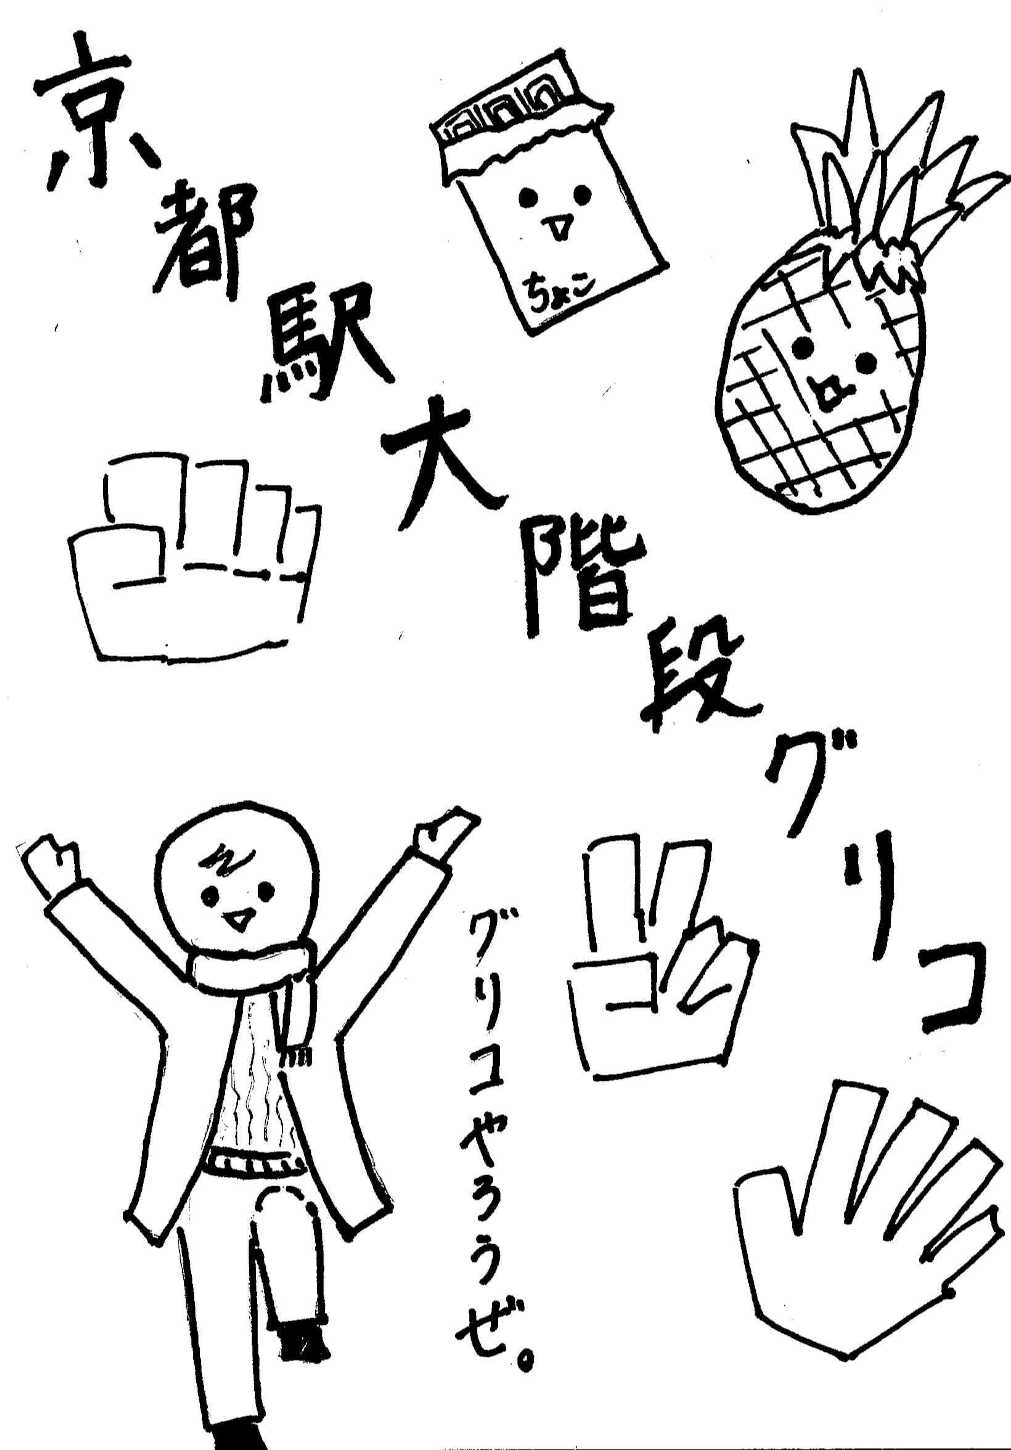 京都駅大階段グリコ
ちょこ
グリコやろうぜ。